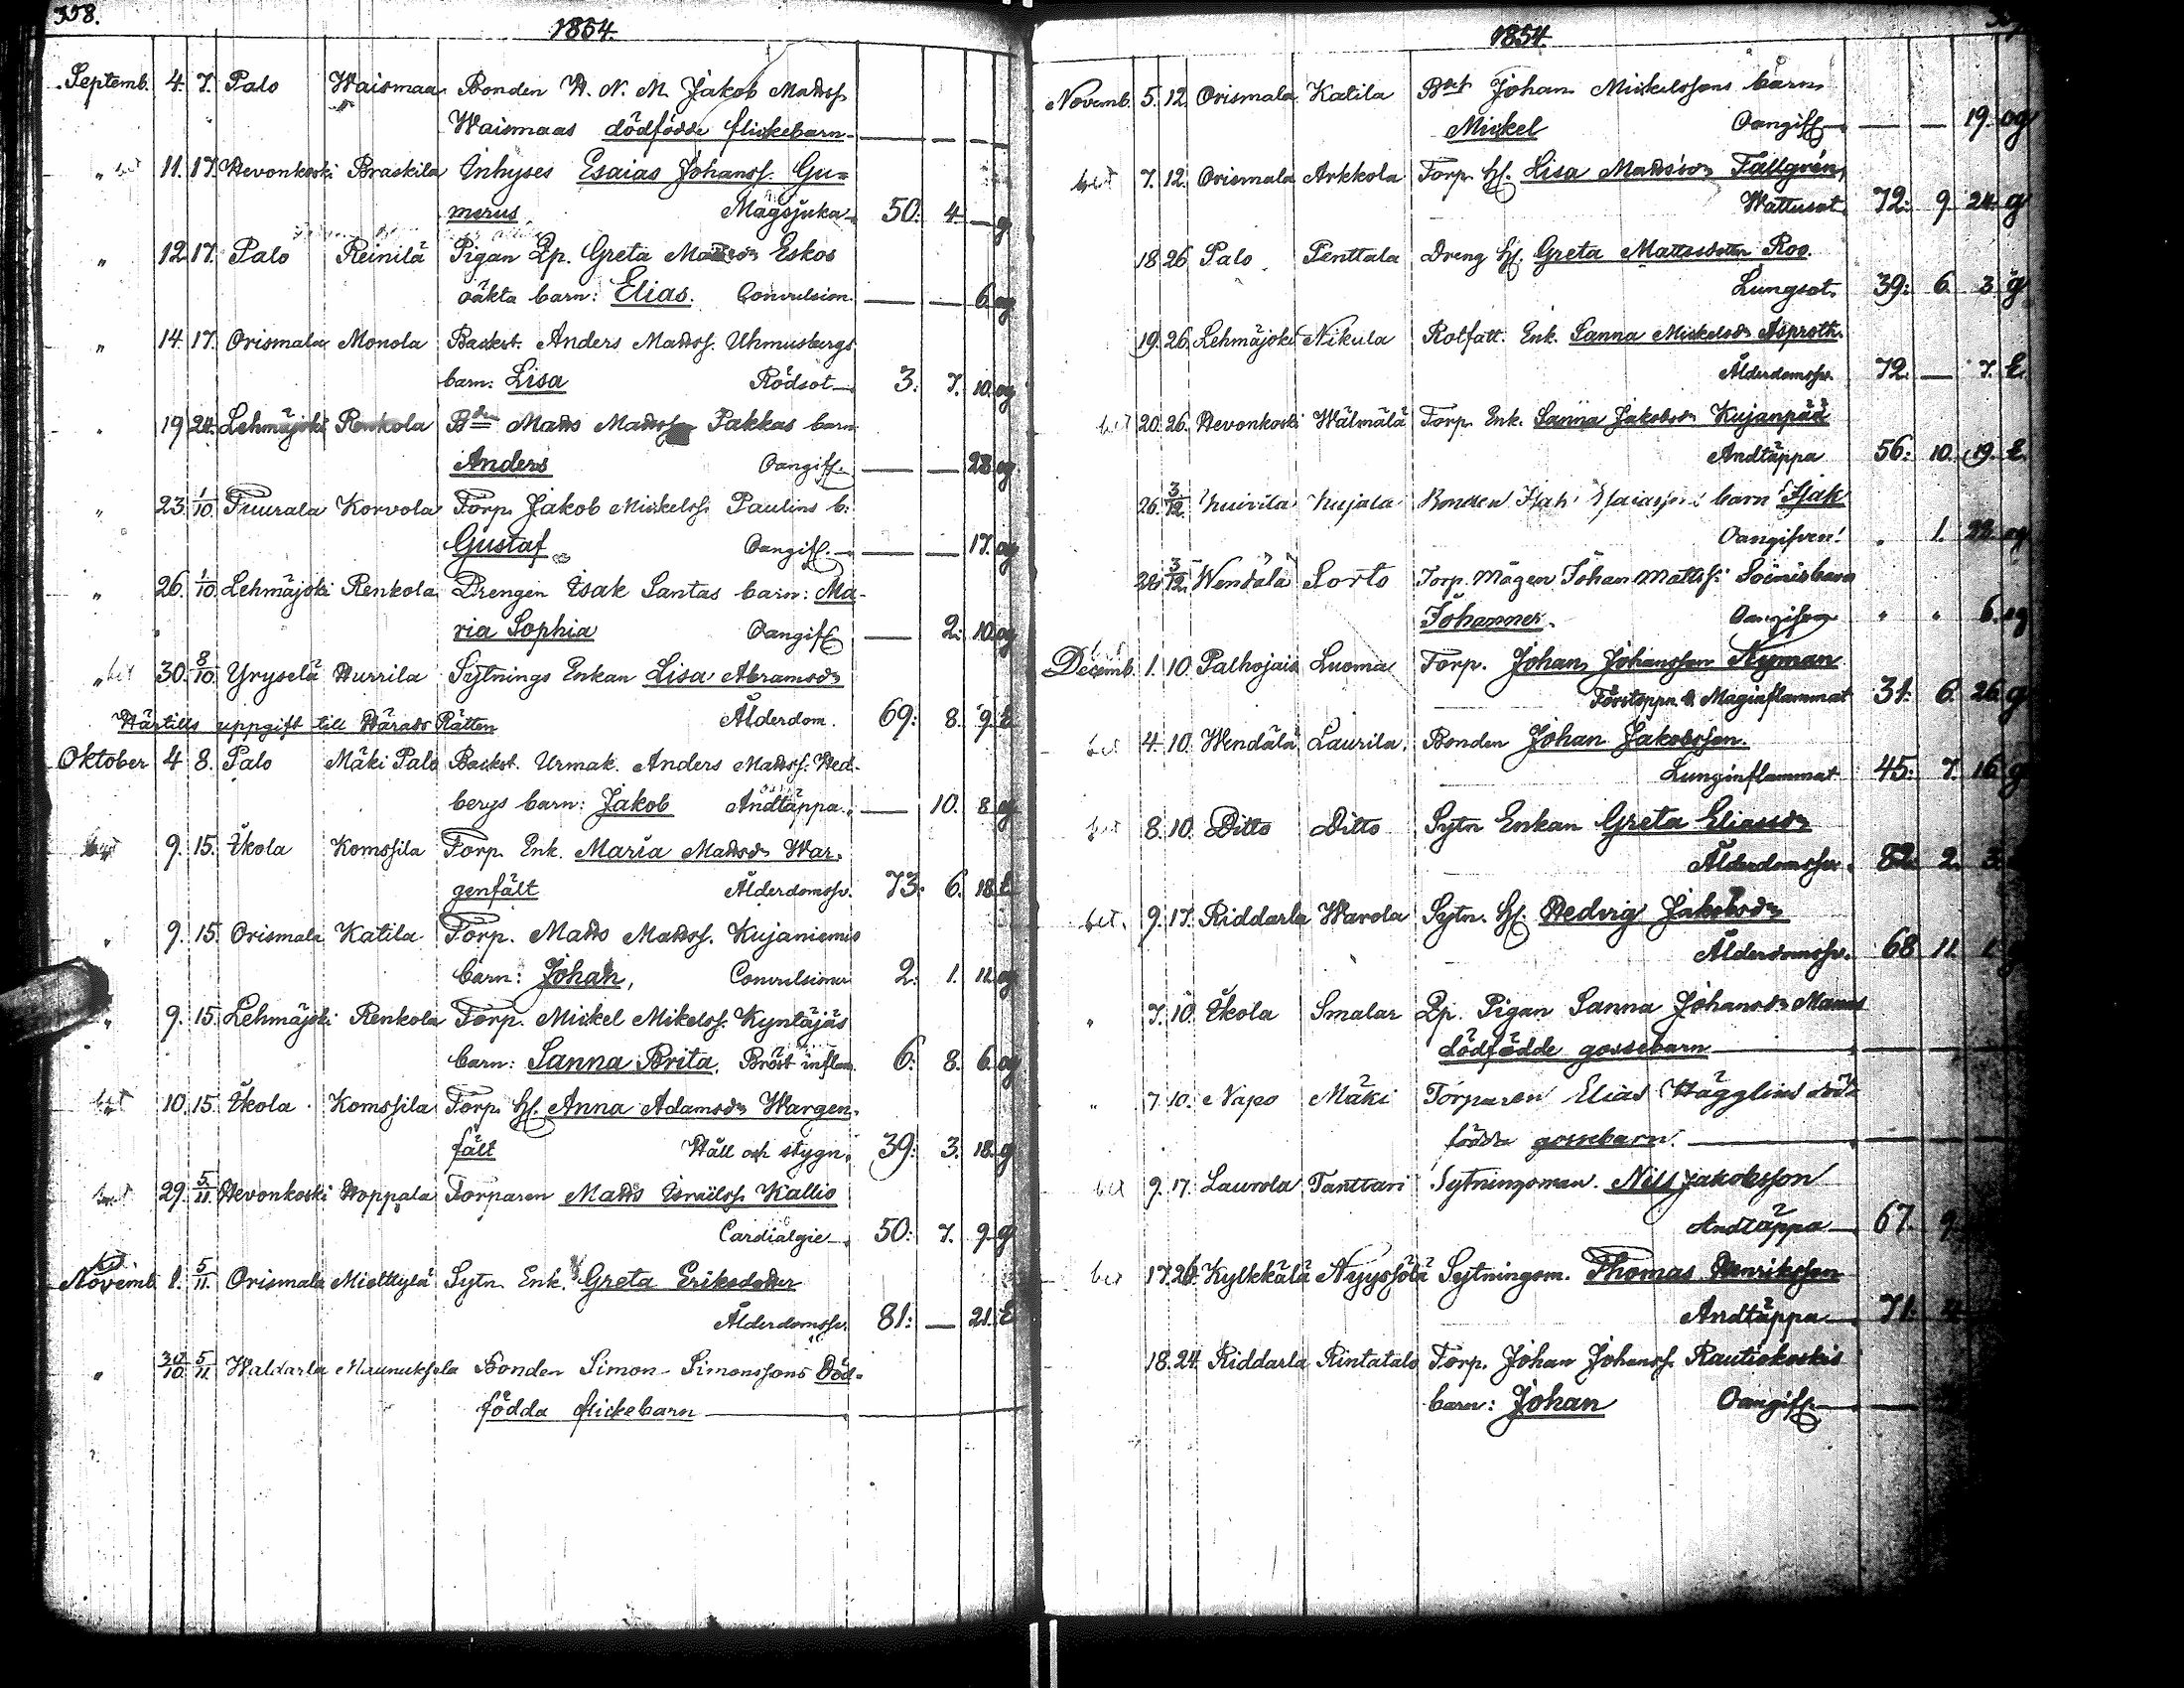 358.
1854.
Septemb. 4. 7. Palo Waismaa Bonden H. N. M. Jakob Madss.
Waismaas dödfödde flickebarn — — —
" bet 11. 17. Hevonkoski Braskila Inhyses Esaias Johanss. Gu=
merus Magsjuka 50: 4. — g
" 12. 17. Palo Reinilä Pigan Qp. Greta Madsdr Eskos
oäkta barn: Elias. Convulsion. — — 6. og
" 14. 17. Orismala Monola Backst. Anders Madss. Uhmusbergs
barn: Lisa Rödsot 3: 7. 10. og
" 19 24. Lehmäjoki Renkola Bden Mads Madss Pakkas barn
Anders Oangif. — — 28 og
" 23. 1/10. Tuurala Korvola Torp. Jakob Mickelss. Paulins b:
Gustaf Oangif. — — 17. og
" 26. 1/10. Lehmäjoki Renkola Drengen Isak Santas barn: Ma-
ria Sophia Oangif — 2: 10. og
" bet 30. 8/10. Yryselä Hurrila Sytnings Enkan Lisa Abramsdr
Ålderdom. 69: 8. 9. E
Härtills uppgift till Härads Rätten
Oktober 4 8. Palo Mäki Palo Backst. Urmak. Anders Madss. Hed-
bergs barn: Jakob Andtäppa. — 10. 8 og
bet 9. 15. Ikola Komssila Torp. Enk. Maria Madsdr War-
genfält Ålderdomssv. 73: 6. 18. E
" 9. 15. Orismala Katila Torp. Mads Madss. Kujaniemis
barn: Johan, Convulsioner 2: 1. 11. og
" 9. 15. Lehmäjoki Renkola Torp. Mickel Mikelss. Kyntäjäs
barn: Sanna Brita. Bröst inflam. 6: 8. 6. og
bet 10. 15. Ikola Komssila Torp. H. Anna Adamsdr Wargen-
fält Håll och stygn. 39: 3. 18. g
bet 29. 5/11. Hevonkoski Hoppala Torparen Mads Israëlss. Kallio
Cardialgie 50: 7. 9. g
bet
Novemb. 1. 5/11. Orismala Mielttylä Sytn. Enk. Greta Eriksdotter
Ålderdomssv. 81: — 21. E
" 30/10 5/11. Waldarla Maunuksela Bonden Simon Simonssons Död-
födda flickebarn —
1854.
Novemb. 5. 12. Orismala Katila Johan Mickelssons barn
Mickel Oangif — — 19. og
bet 7. 12. Orismala Arkkola Torp. H. Lisa Madsdr Tallgrén,
Wattusot. 72: 9. 24. g
18. 26. Palo Penttala Dreng H. Greta Mattsdotter Roo.
Lungsot. 39: 6. 3. g
19. 26. Lehmäjoki Nikula Rotfatt. Enk. Sanna Mickelsdr Asproth.
Ålderdomssv. 72. — 7. E.
bet 20. 26. Hevonkoski Wälmälä Torp. Enk. Sanna Jakobsdr Kujanpää
Andtäppa 56: 10. 19. E.
26. 3/12. Kuivila Kujala Bonden Isak Esaiassons barn Isak
Oangifven! " 1. 22 og
3/12. Wendälä Sorto Torp. Mågen Johan Mattss. Soinisbarn
Johannes. Oangifven " " 6. og
bet
Decemb. 1. 10. Palhojais Luoma Torp. Johan Johansson Nyman
Förstoppn. & Maginflammat 31: 6. 26. g
bet 4. 10. Wendälä Laurila. Bonden Johan Jakobsson.
Lunginflammat. 45: 7. 16. g
bet 8. 10. Ditto Ditto Sytn Enkan Greta Eliasdr
Ålderdomssv. 82. 2. 3.
bet. 9. 17. Riddarla Warola Sytn. H. Hedvig Jakobsdr
Ålderdomssv. 68 11. 1. g
" 7. 10. Ikola Smalar Qp. Pigan Sanna Johansdr
dödfödde gossebarn —
" 7. 10. Napo Mäki Torparen Elias Hägglins död=
födde gossebarn. —
bet 9. 17. Laurola Tanttari Sytningsman. Nils Jakobsson
Andtäppa — 67. 9.
bet 17. 26. Kylkkälä Nyyssölä Sytningsm. Thomas Henriksson
Andtäppa 71.
18. 24. Riddarla Rintatalo Torp. Johan Johanss. Rautiokoskis
barn: Johan Oangif. —